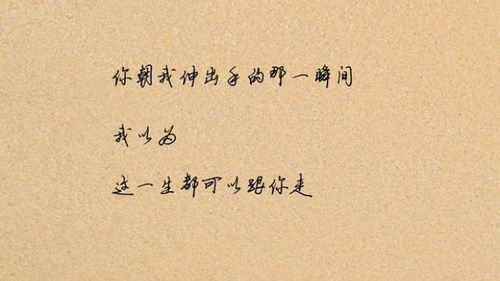 你朝我伸出手的那一瞬间
我以为
这一生都可以跟你走